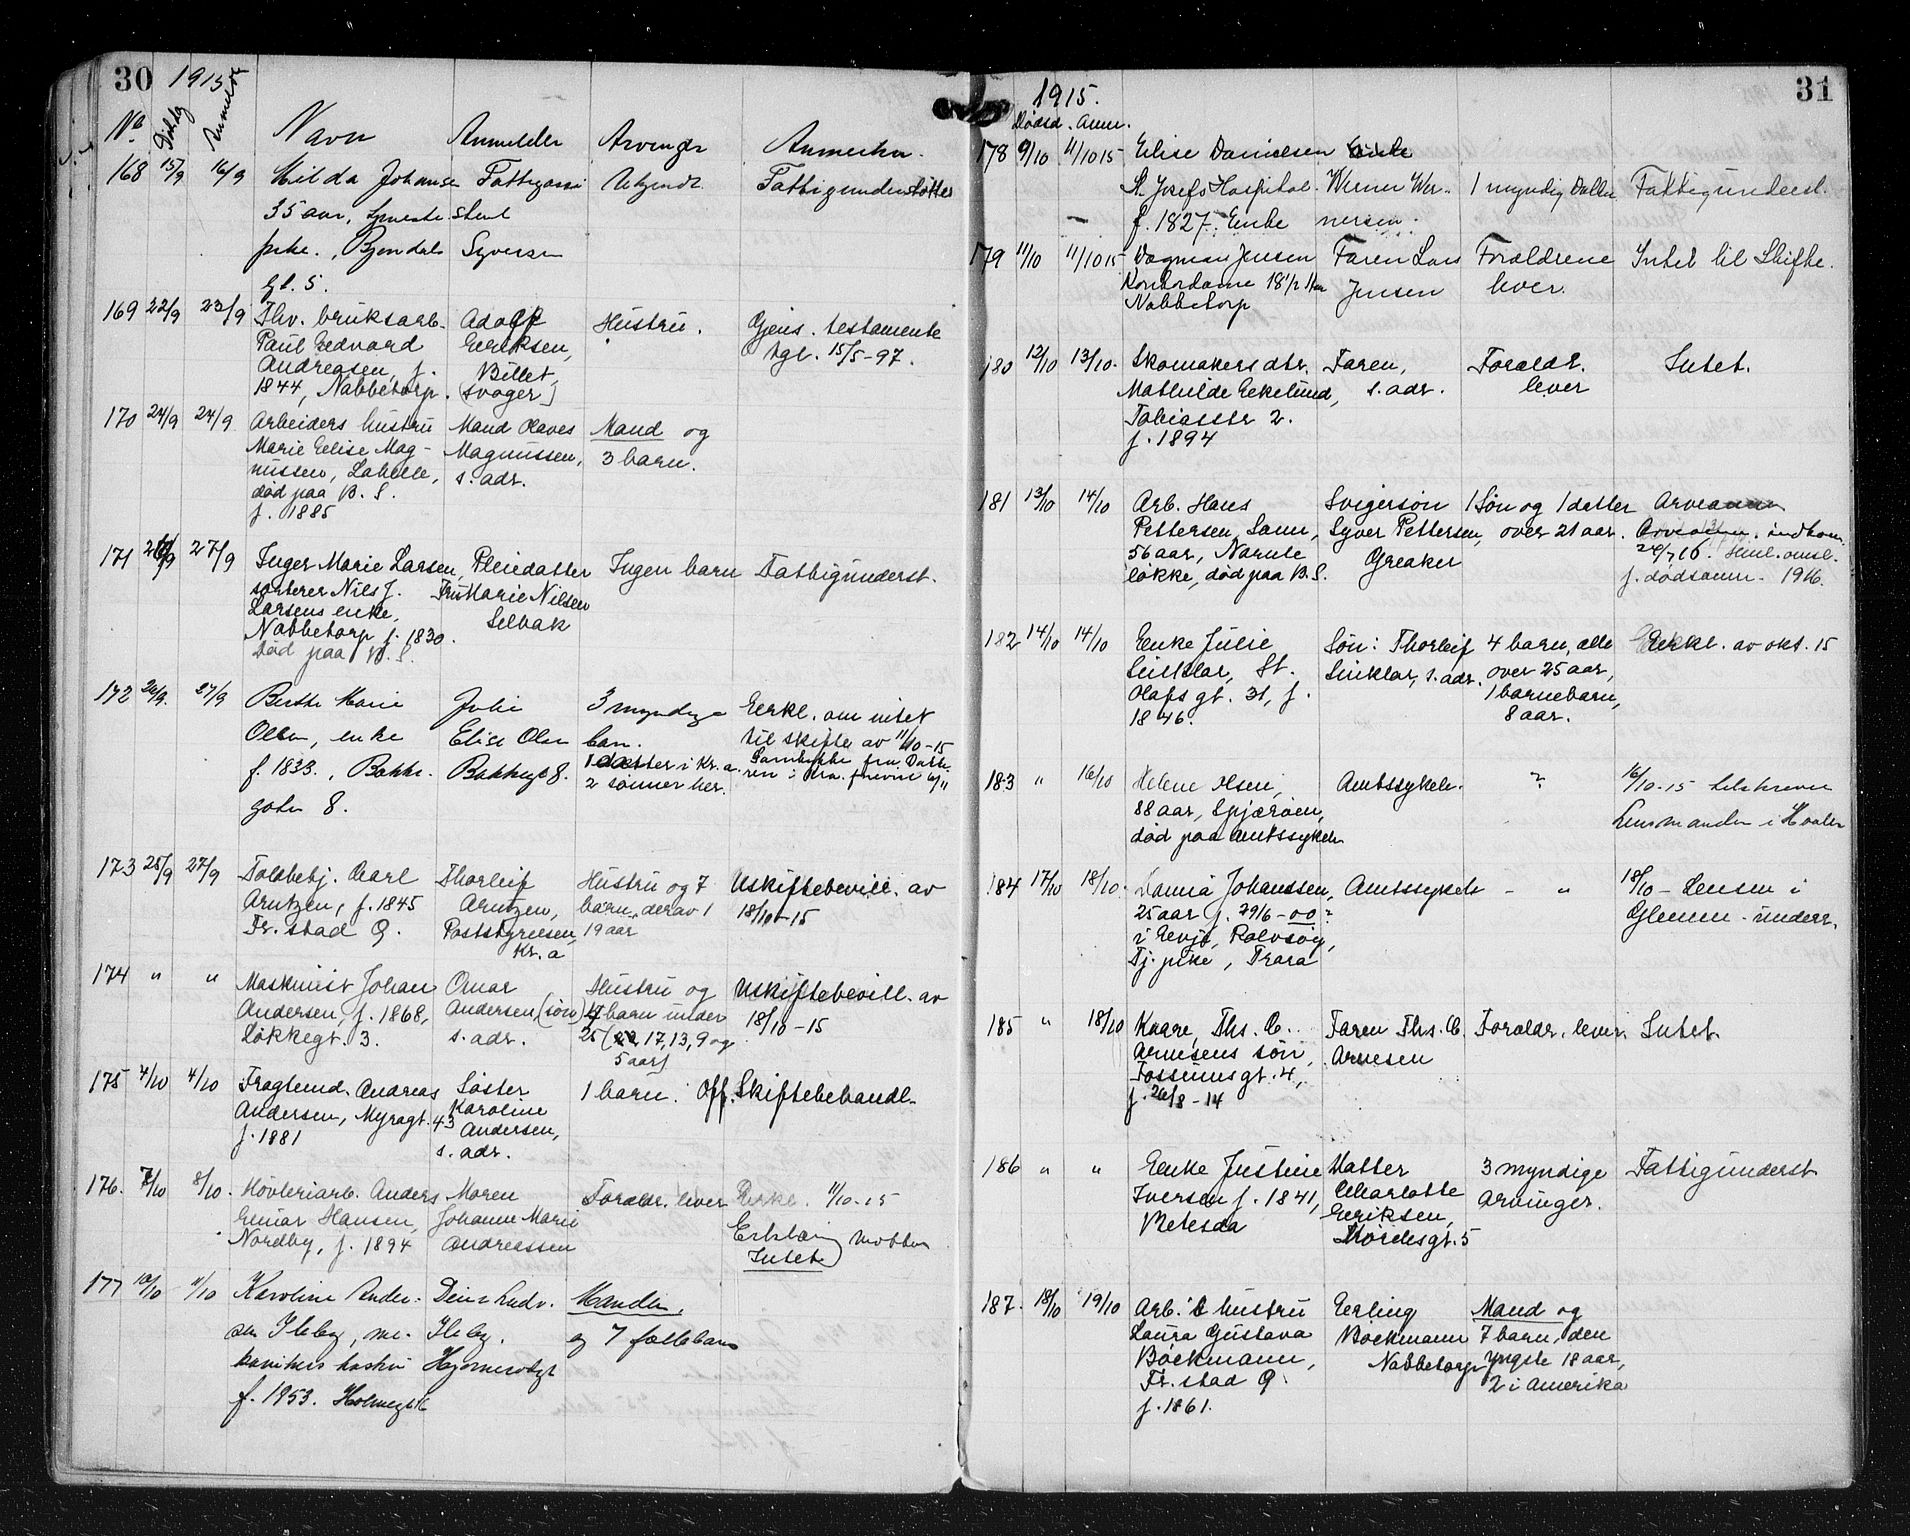 30 1915
No. Dødsdg Anmeldt Navn Anmelder Arvinger Anmerkn.
168 15/9 16/9 Hilda Johanse Fattigassi Ukjendt Fattigunderstøttet
35 aar, tjeneste stent
pike., Bjørndals Syversen
gt. 5.
169 22/9 23/9 Fhv. bruksarb. Adolf Hustru. Gjens. testamente
Paul Edvard Eriksen, tgl. 15/5-97.
Andreasen, f. Billet,
1844, Nabbetorp. (svoger)
170 24/9 24/9 Arbeiders hustru Mand Olaves Mand og
Marie Elise Mag- Magnussen, 3 barn.
nussen, Labelle, s. adr.
død paa B. S.
f. 1885
171 26/9 27/9 Inger Marie Larsen, Pleiedatter Ingen barn Fattigunderst.
sorterer Nils J. Fru Marie Nilsen
Larsens enke, Selbak
Nabbetorp f. 1830.
Død paa B. S.
172 26/9. 27/9 Berthe Marie Julie 3 myndige Erkl. om intet
Olsen, enke Elise Olsen barn. til skifte av 11/10-15
f. 1833., Bakke- Bakkegt 8. 1 datter i Kr.a. Samtykke fra Datte-
2 sønner her. ren i Kra.
gaten 8.
173 25/9 27/9 Toldbetj. Carl Thorleif Hustru og 7 Uskiftebevill. av
Arntzen, f. 1845 Arntzen, barn, derav 1 18/10-15
Fr.stad Ø. Poststyrelsen, 19 aar
Kr.a
174 " " Maskinist Johan Omar Hustru og Uskiftebevill. av
Andersen, f. 1868, Andersen, (søn) 4 barn under 18/10-15
Løkkegt. 3. s. adr. 25 (22, 17, 13, 9 og
5 aar)
175 4/10 4/10 Fragtemd. Andreas Søster 1 barn. Off. Skiftebehandl.
Andersen, Myragt. 43 Karoline
f. 1881 Andersen,
s. adr.
176. 7/10 8/10. Høvleriarb. Anders Moren Forældr. lever Erkl. 11/10-15
Einar Hansen, Johanne Marie Erklæring mottat
Nordby, f. 1894 Andreassen Intet
177 10/10 11/10 Karoline Ander- Einar Ludv. Manden,
sen Ileby, me- Ileby. og 7 fællesbarn
kanikers hustru
f. 1853. Holmegt
1915. 31
Dødsd. Anm.
178 9/10 11/10 15 Elise Danielsen Enke
St. Josefs Hospital. Werner Wer- 1 myndig Datter Fattigunderst.
f. 1827. Enke nersen.
179 11/10 11/10 15 Dagmar Jensen Faren Lars Forældrene Intet til Skifte.
Kontordame 18 1/2 aar Jensen lever.
Nabbetorp
180 12/10 13/10. Skomakers dtr. Faren, Forældr. Intet.
Mathilde Eekelund, s. adr. lever
Tobiasstr 2.
f. 1894
181 13/10 14/10 Arb. Hans Svigersøn 1 Søn og 1 datter Arveanm
Pettersen Lunn, Syver Pettersen, over 21 aar. Arveanm. indkom.
56 aar, Narnte Greaker 24/7 16. Henl. omsl.
løkke, død paa B. S. f. dødsanm. 1916.
182 14/10 14/10 Enke Julie Søn: Thorleif 4 barn, alle Erkl. av okt. 15
Sinklar, St. Sinklar, s. adr. over 25 aar,
Olafs gt. 31, f. 1 barnebarn,
1846. 8 aar.
183 " 16/10 Helene Olsen, Amtssykeh. ? 16/10-15 tilskrevet
88 aar, Spjærøen, Lensmanden i Hvaler
død paa Amtssykeh
184 17/10 18/10. Johanssen, Amtssykeh - " 18/10 - Lensm i
25 aar f. 29/6-00? Glemm. underr.
i Evje, Rolvsøy,
Tj. pike, Trara
185 " 18/10 Kaare, Ths. C. Faren Ths. C. Forældr. lever Intet
Arnesens søn, Arnesen
Fossumsgt. 4,
f. 26/8-14
186 " " Enke Justine Datter 3 myndige Fattigunderst
Iversen f. 1841, Charlotte arvinger.
Betesda Eriksen,
Mordesgt. 5
187. 18/10 19/10 Arb.'s hustru Erling Mand og
Laura Gustava Bøckmann 7 barn, den
Bøckmann, Nabbetorp yngste 18 aar,
Fr.stad Ø. 2 i Amerika
f. 1861.